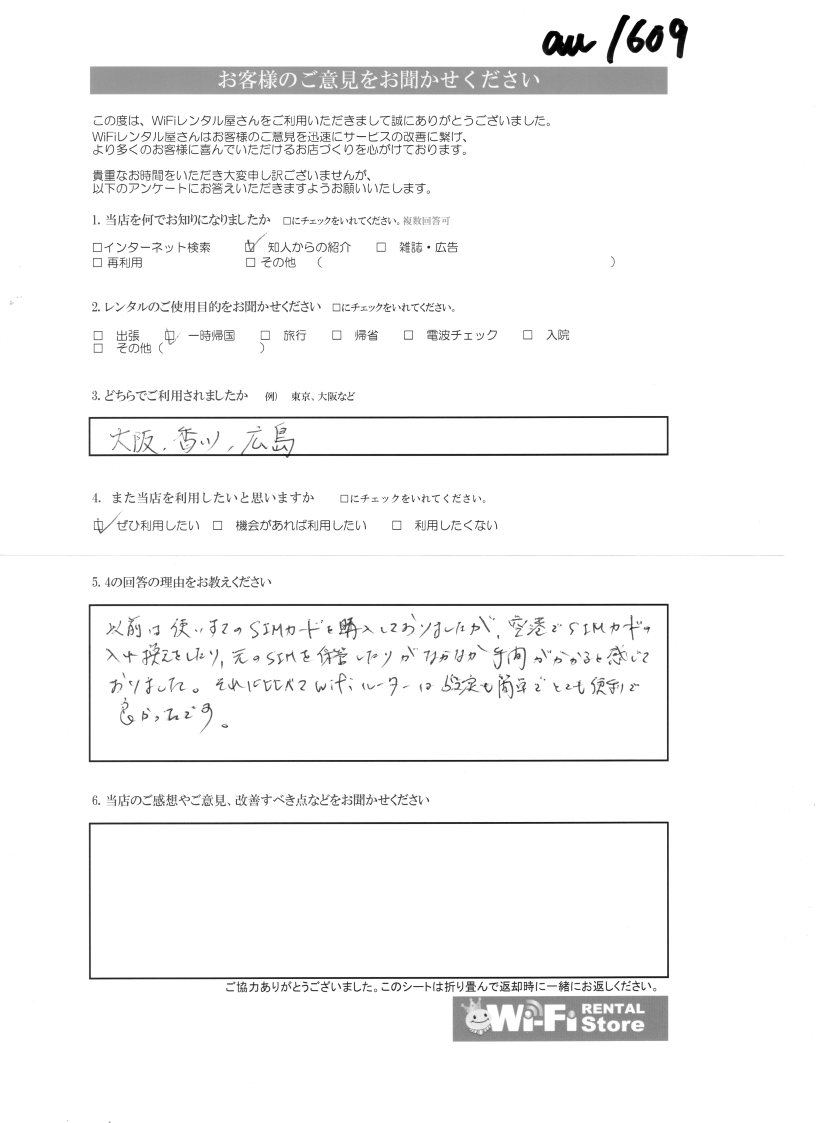 au 1609
お客様のご意見をお聞かせください
この度は、WiFiレンタル屋さんをご利用いただきまして誠にありがとうございました。
WiFiレンタル屋さんはお客様のご意見を迅速にサービスの改善に繋げ、
より多くのお客様に喜んでいただけるお店づくりを心がけております。
貴重なお時間をいただき大変申し訳ございませんが、
以下のアンケートにお答えいただきますようお願いいたします。
1. 当店を何でお知りになりましたか □にチェックをいれてください。複数回答可
□インターネット検索 ☑ 知人からの紹介 □ 雑誌・広告
□ 再利用 □ その他 ( )
2. レンタルのご使用目的をお聞かせください □にチェックをいれてください。
□ 出張 ☑ 一時帰国 □ 旅行 □ 帰省 □ 電波チェック □ 入院
□ その他 ( )
3. どちらでご利用されましたか 例) 東京、大阪など
大阪、香川、広島
4. また当店を利用したいと思いますか □にチェックをいれてください。
☑ ぜひ利用したい □ 機会があれば利用したい □ 利用したくない
5. 4の回答の理由をお教えください
以前は使いすてのSIMカードを購入しておりましたが、空港でSIMカードの
入れ換えをしたり、元のSIMを保管したりがなかなか手間がかかると感じて
おりました。それに比べてWiFiルーターは設定も簡単でとても便利で
良かったです。
6. 当店のご感想やご意見、改善すべき点などをお聞かせください
ご協力ありがとうございました。このシートは折り畳んで返却時に一緒にお返しください。
Wi-Fi RENTAL Store